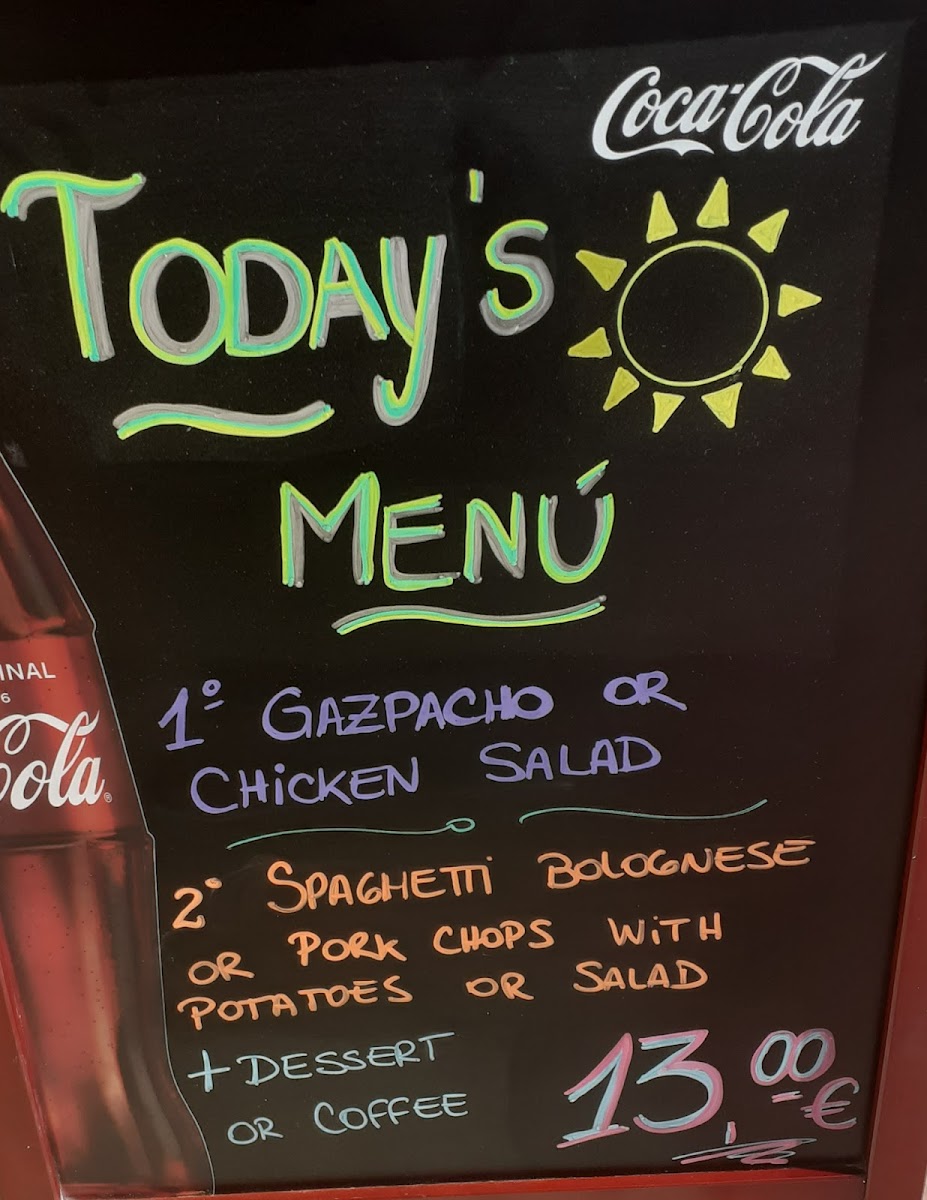 Coca-Cola
TODAY'S
MENÚ
1º GAZPACHO OR
CHICKEN SALAD
2º SPAGHETTI BOLOGNESE
OR PORK CHOPS WITH
POTATOES OR SALAD
+ DESSERT
OR COFFEE
13,00 €
INAL
6
Cola®